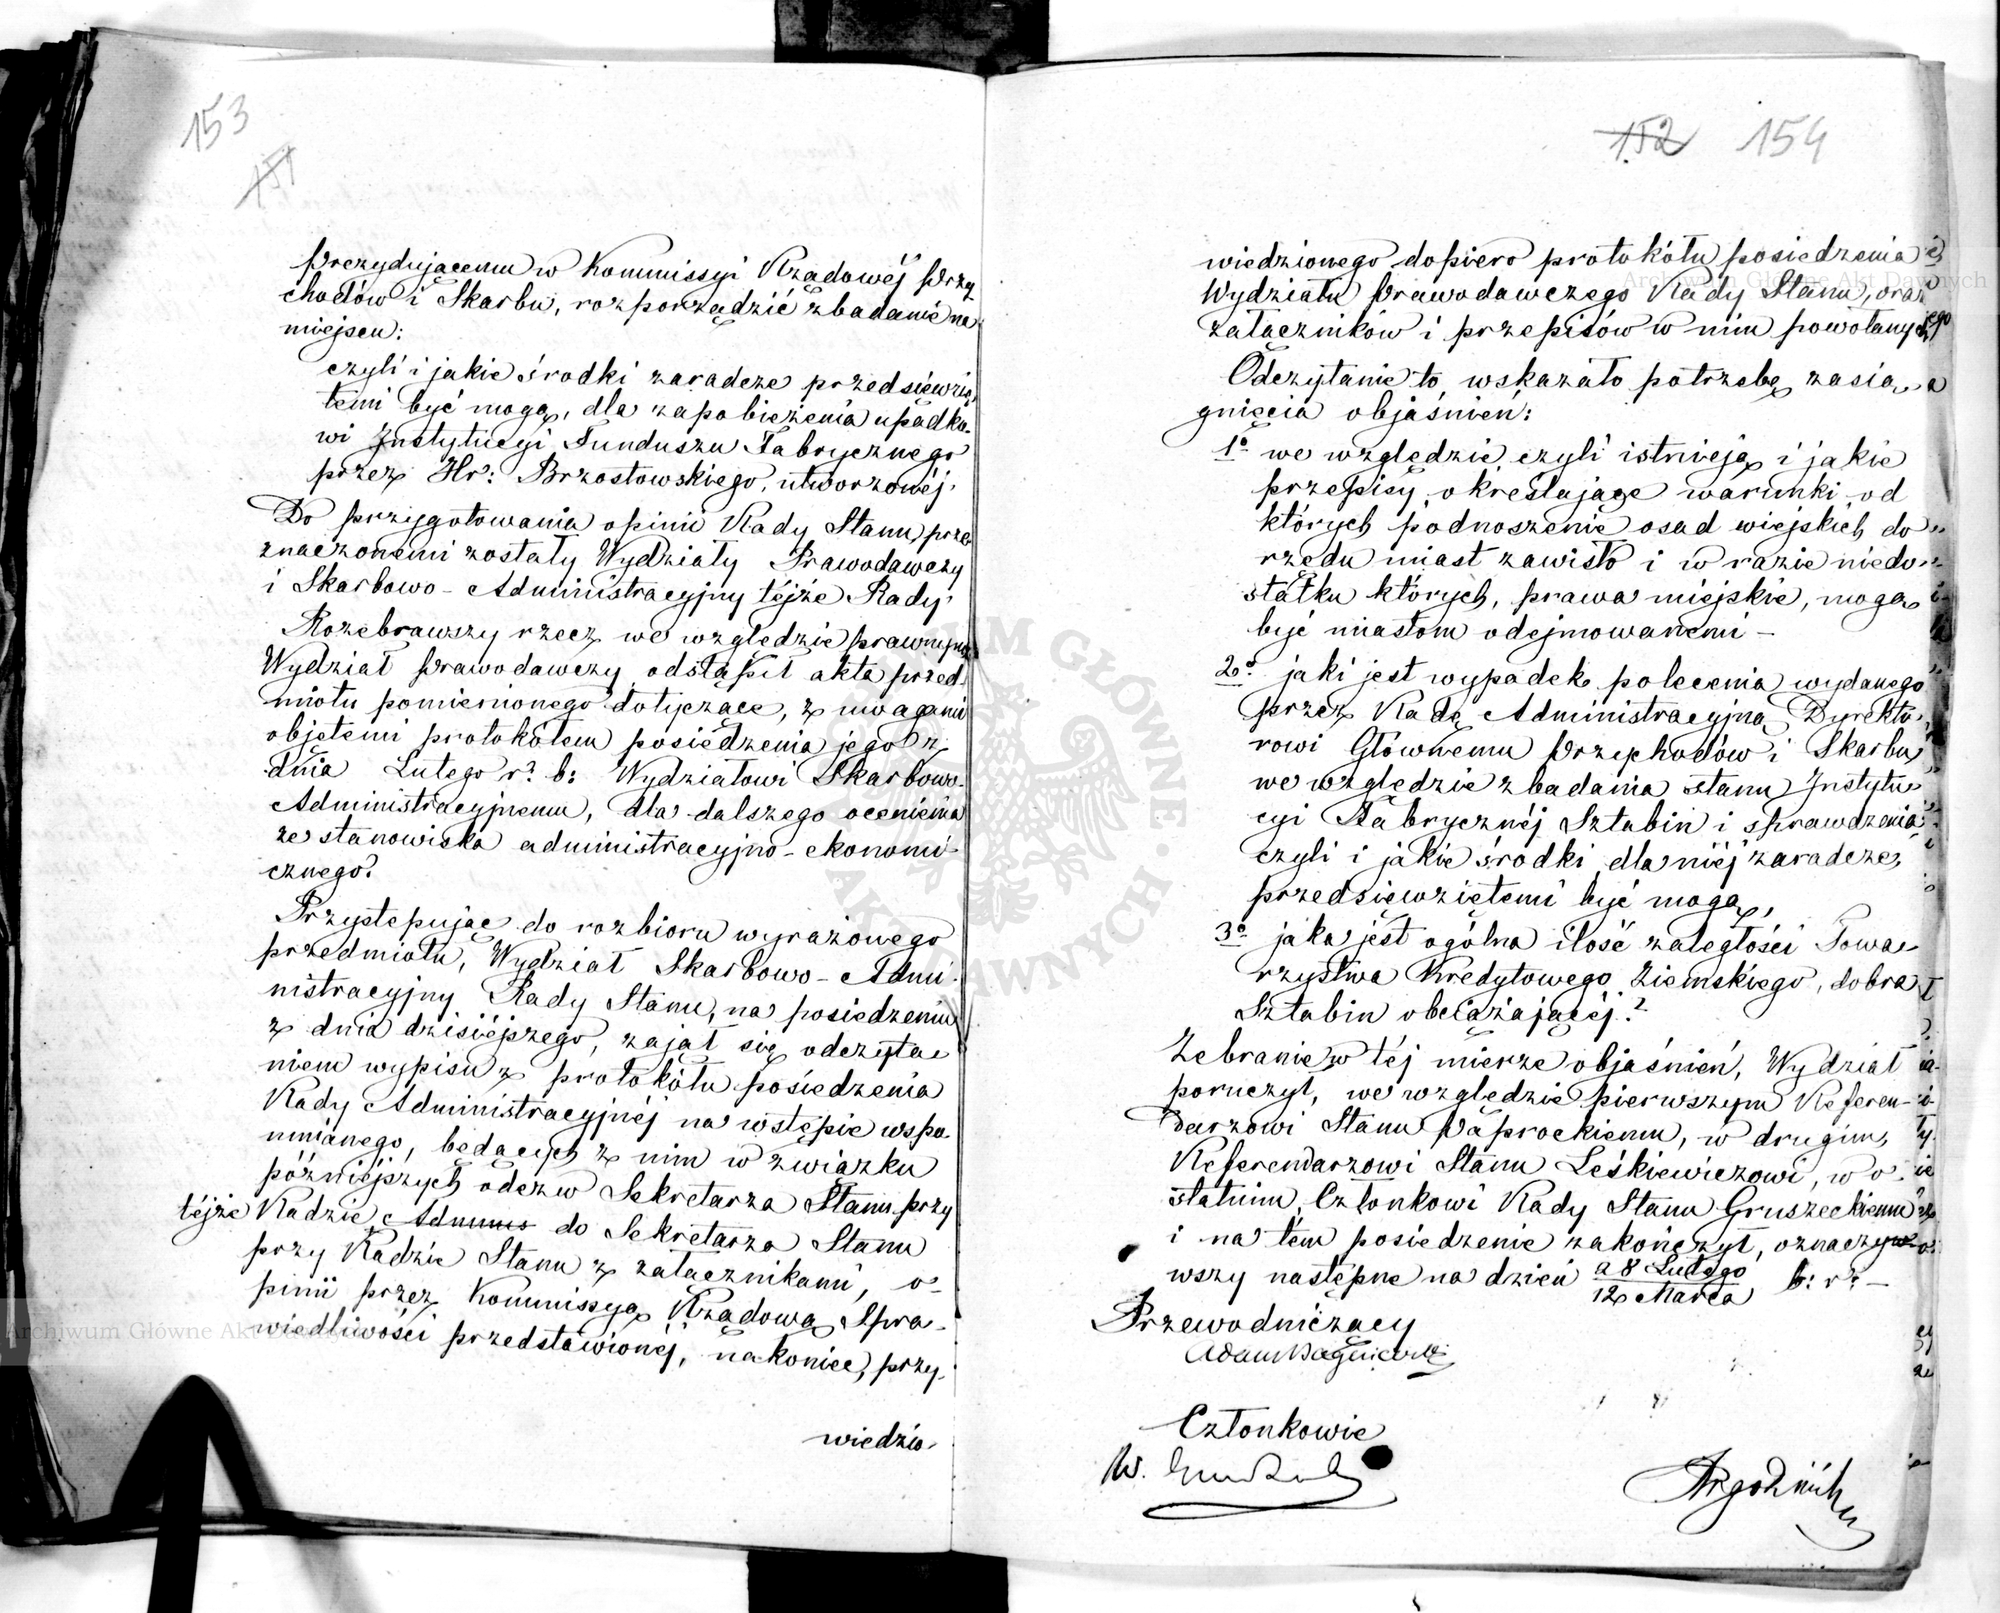 153
151
prezydującemu w Kommissyi Rządowéj Przy
chodów i Skarbu, rozporządzić zbadanie na
miejscu:
czyli i jakie środki zaradcze przedsięwzię
temi być mogą, dla zapobieżenia upadko-
wi Instytucyi Funduszu Fabrycznego
przez Hr: Brzostowskiego, utworzonéj.
Do przygotowania opinii Rady Stanu, prze-
znaczonemi zostały Wydziały Prawodawczy
i Skarbowo-Administracyjny téjże Rady.
Rozebrawszy rzecz we względzie prawnym
Wydział Prawodawczy odstąpił akta przed-
miotu pomienionego dotyczące, z uwagami
objętemi protokółem posiedzenia jego z
dnia Lutego r? b: Wydziałowi Skarbowo-
Administracyjnemu, dla dalszego ocenienia
ze stanowiska administracyjno-ekonomi-
cznego?
Przystępując do rozbioru wyrażonego
przedmiotu, Wydział Skarbowo-Admi-
nistracyjny Rady Stanu, na posiedzeniu
z dnia dzisiéjszego, zajął się odczyta-
niem wypisu z protokółu posiedzenia
Rady Administracyjnéj na wstępie wspo-
mnianego, będących z nim w związku
późniéjszych odezw Sekretarza Stanu przy
téjże Radzie Adminis do Sekretarza Stanu
przy Radzie Stanu z załącznikami, o-
pinii przez Kommissyą Rządową Spra-
wiedliwości przedstawionéj, nakoniec, przy-
wiedzio-
152 154
wiedzionego dopiero protokółu posiedzenia
Wydziału Prawodawczego Rady Stanu, oraz
załączników i przepisów w nim powołanych
Odczytanie to, wskazało potrzebę zasią-
gnięcia objaśnień:
1° we względzie, czyli istnieją i jakie
przepisy, określające warunki od
których podnoszenie osad wiejskich do
rzędu miast zawisło i w razie niedo-
statku których, prawa miéjskie, mogą
być miastom odejmowanemi -
2° jaki jest wypadek polecenia wydanego
przez Radę Administracyjną Dyrekto-
rowi Głównemu Przychodów i Skarbu
we względzie zbadania stanu Instytu-
cyi Fabrycznéj Sztabin i sprawdzenia
czyli i jakie środki dla niéj zaradcze,
przedsięwziętemi być mogą,
3° jaka jest ogólna ilość zaległości Towa-
rzystwa Kredytowego Ziemskiego, dobra
Sztabin obciążającéj?
Zebranie w téj mierze objaśnień, Wydział
poruczył, we względzie pierwszym Referen-
darzowi Stanu Paprockiemu, w drugim,
Referendarzowi Stanu Leśkiewiczowi, w o-
statnim, Członkowi Rady Stanu Gruszeckiemu
i na tém posiedzenie zakończył, oznaczy-
wszy następne na dzień 28 Lutego b: r? -
12 Marca
Przewodniczący
Członkowie
Archiwum Główne Akt Dawnych
Archiwum Główne Akt Dawnych